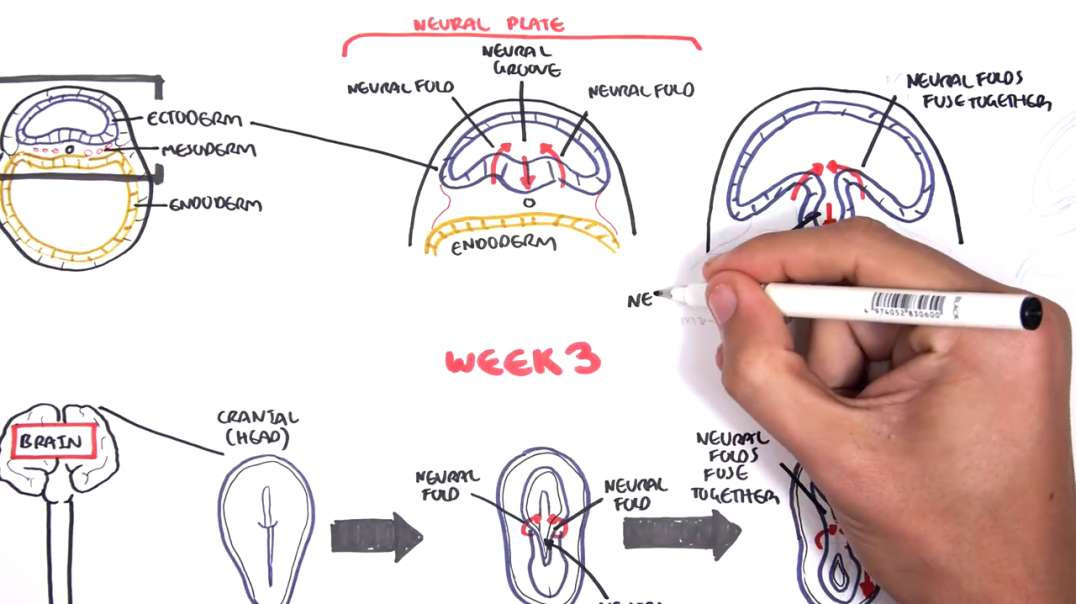 NEURAL PLATE
NEURAL
GROOVE
NEURAL FOLD
NEURAL FOLD
NEURAL FOLDS
FUSE TOGETHER
ECTODERM
MESODERM
ENDODERM
ENDODERM
NE
4 974052 830600
BLACK
WEEK 3
BRAIN
CRANIAL
(HEAD)
NEURAL
FOLD
NEURAL
FOLD
NEURAL
FOLDS
FUSE
TOGETHER